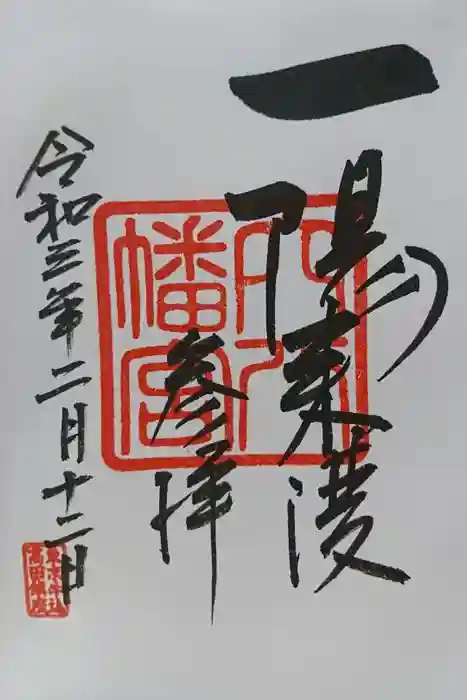 一陽来復
参拝
穴八幡宮
令和三年二月十二日